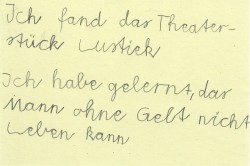 Ich fand das Theater-
stück Lustiek
Ich habe gelernt, das
Mann ohne Gelt nicht
Leben kann